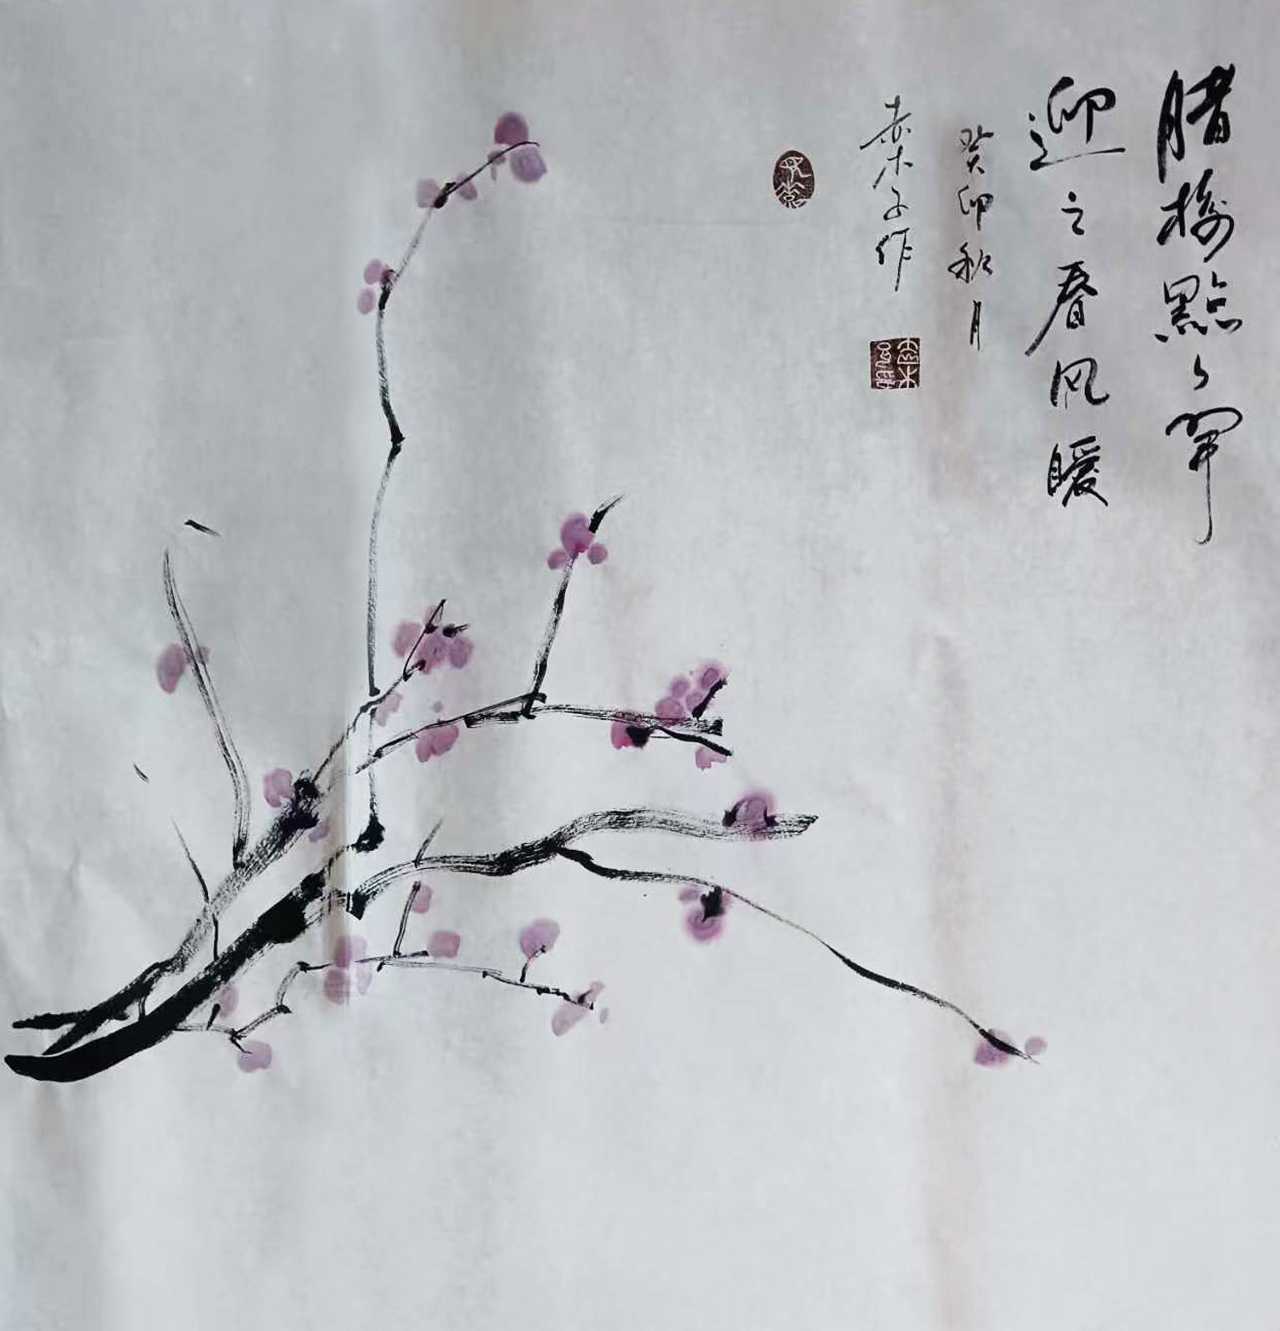 腊梅點々開
迎之春风暖
癸卯秋月
赤木子作